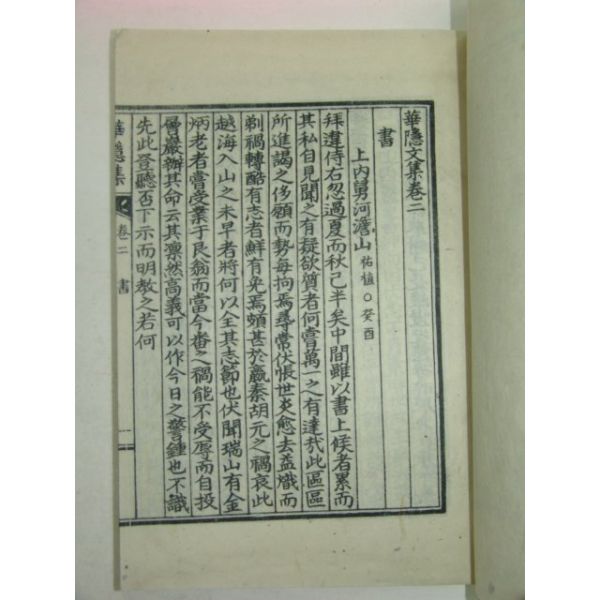 華隱文集卷二
書
上內舅河澹山 祐植○癸酉
拜違侍右忽過夏而秋已半矣中間雖以書上候者累而
其私自見聞之有疑欲質者何嘗萬一之有達哉此區區
所進謁之侈願而勢每拘焉尋常伏悵世炎愈去益熾而
剃禍轉酷有志者鮮有免焉頗甚於嬴秦胡元之禍哀此
越海入山之未早者將何以全其志節也伏聞瑞山有金
炳老者嘗受業于艮翁而當今番之禍能不受辱而自投
層巖辦其命云其凛然高義可以作今日之警鍾也不識
先此登聽否下示而明教之若何
華隱集 卷二 書